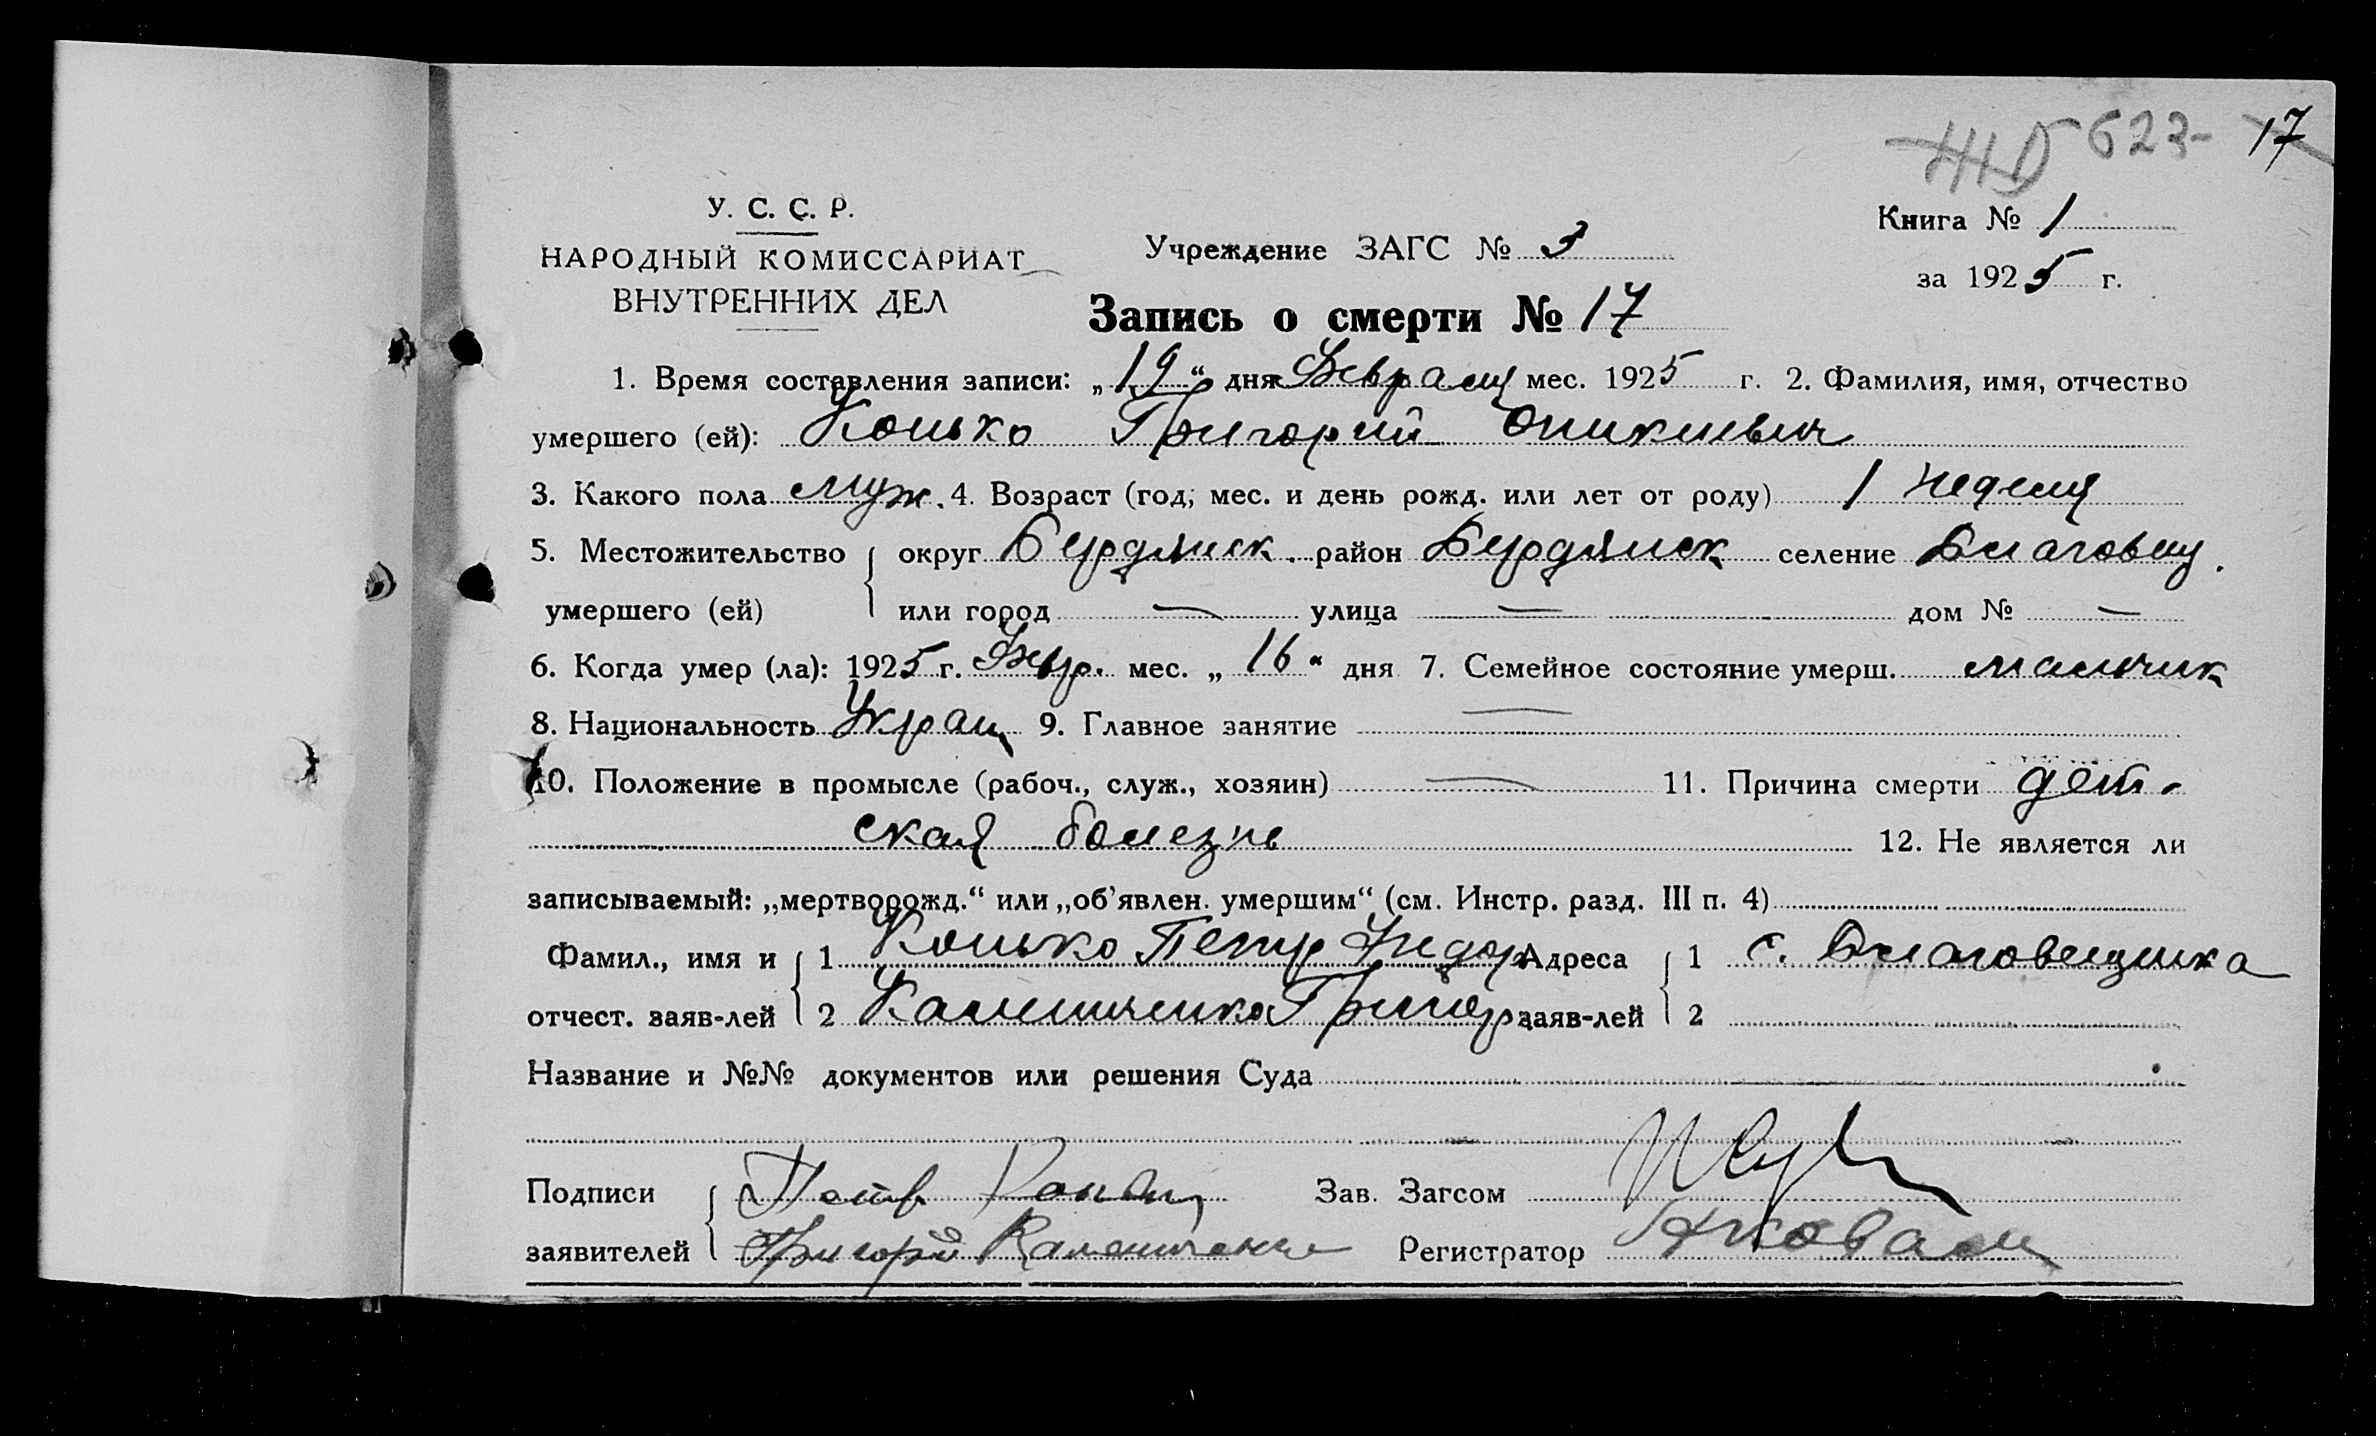 ЖД 623- 17
У. С. С. Р.
НАРОДНЫЙ КОМИССАРИАТ
ВНУТРЕННИХ ДЕЛ
Учреждение ЗАГС № 3
Книга № 1
за 1925 г.
Запись о смерти № 17
1. Время составления записи: „19“ дня Февраля мес. 1925 г. 2. Фамилия, имя, отчество
умершего (ей): Конько Григорий
3. Какого пола муж. 4. Возраст (год, мес. и день рожд. или лет от роду) 1 неделя
5. Местожительство округ Бердянск. район Бердянск селение Благовещ.
умершего (ей) или город — улица — дом № —
6. Когда умер (ла): 1925 г. Февр. мес. „16“ дня 7. Семейное состояние умерш. мальчик
8. Национальность Украин 9. Главное занятие —
10. Положение в промысле (рабоч., служ., хозяин) — 11. Причина смерти дет-
ская болезнь 12. Не является ли
записываемый: „мертворожд.“ или „об’явлен. умершим“ (см. Инстр. разд. III п. 4)
Фамил., имя и 1 Конько Петр Федор Адреса 1 с. Благовещенка
отчест. заяв-лей 2 Калиниченко Григор. заяв-лей 2
Название и №№ документов или решения Суда
Подписи Петр Зав. Загсом
заявителей Григорій Калениченко Регистратор